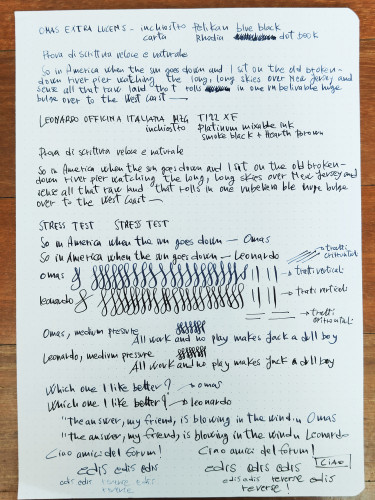 OMAS EXTRA LUCENS - inchiostro Pelikan blue black
carta Rhodia dot book
Prova di scrittura veloce e naturale
So in America when the sun goes down and I sit on the old broken-
down river pier watching the long, long skies over New Jersey and
sense all that raw land that rolls in one unbelivable huge
bulge over to the West Coast —
LEONARDO OFFICINA ITALIANA MZG TIZZ XF
inchiostro Platinum mixable ink
smoke black + Hearth brown
Prova di scrittura veloce e naturale
So in America when the sun goes down and I sit on the old broken-
down river pier watching the long, long skies over New Jersey and
sense all that raw land that rolls in one unbelievable huge bulge
over to the West Coast —
STRESS TEST STRESS TEST
So in America when the sun goes down — Omas
So in America when the sun goes down — Leonardo
tratti orizzontali
omas
tratti verticali
leonardo
tratti verticali
tratti orizzontali
Omas, medium pressure
All work and no play makes Jack a dull boy
Leonardo, medium pressure
All work and no play makes Jack a dull boy
Which one I like better? omas
Which one I like better? Leonardo
"The answer, my friend, is blowing in the wind... Omas
"The answer, my friend, is blowing in the wind... Leonardo
Ciao amici del forum! Ciao amici del forum!
edis edis edis edis edis edis CIAO
edis edis reverse edis edis edis reverse edis
reverse reverse!